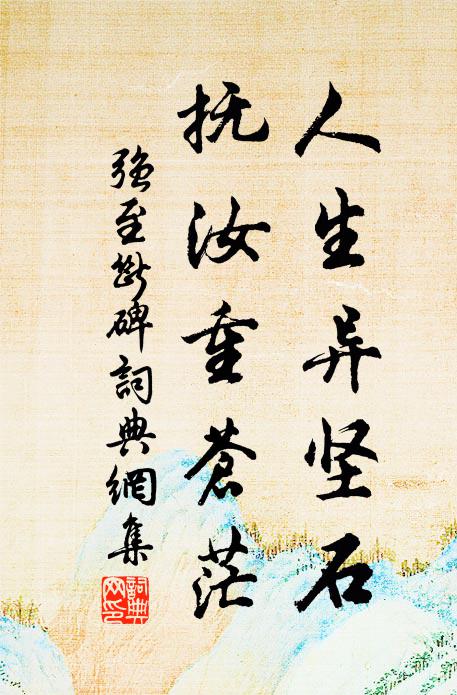 人生异坚石
抚汝重苍茫
强至断碑詞典網集
詞典網印